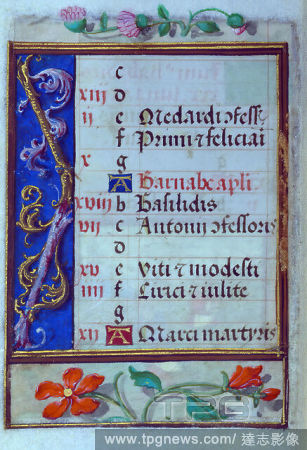 c
xiii d
ii e Medardi ꝯfess
f Primi ⁊ feliciai
x g
A Barnabe apli
xviii b Basilidis
vii c Antonii ꝯfessoris
d
xv e Viti ⁊ modesti
iiii f Cirici ⁊ iulite
g
xii A Marci martyris
TPG
www.tpgnews.com/ 達志影像